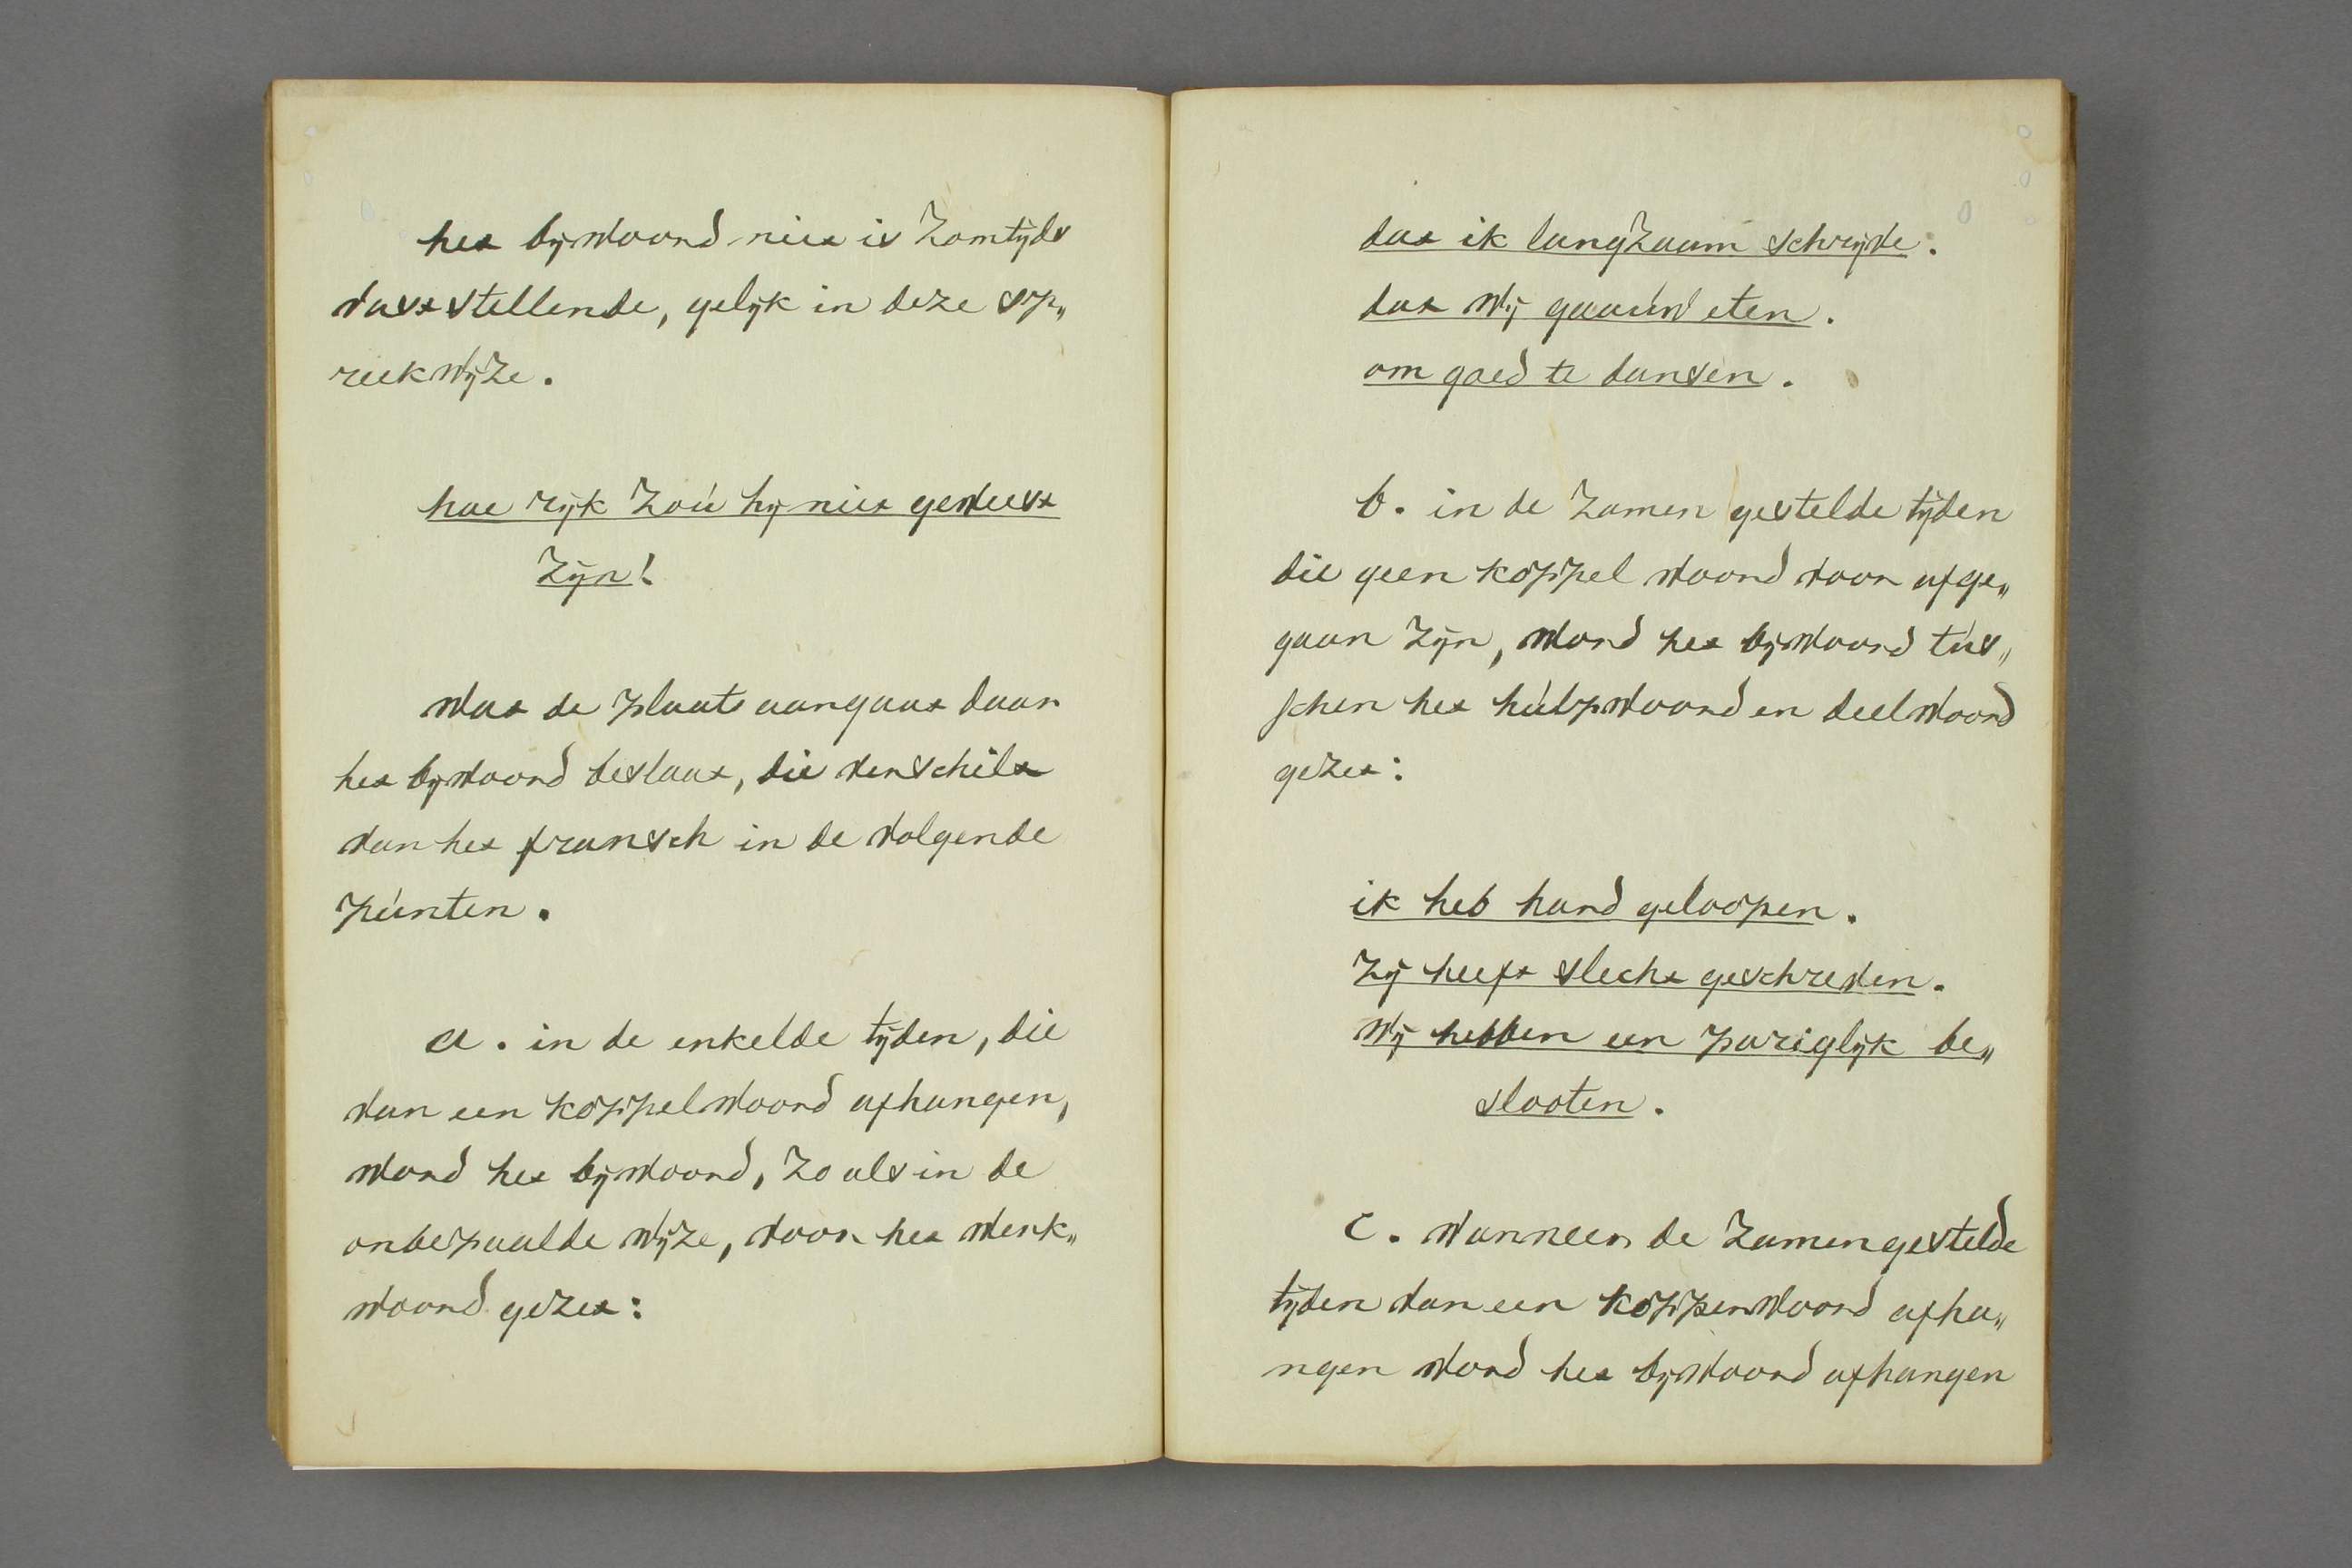 het bijwoord niet is Zomtijds
vaststellende, gelijk in deze sp„
reekwijze.
hoe rijk Zoú hij niet geweest
Zijn!
wat de plaats aangaat daar
het bijwoord beslaat, die verschilt
van het fransch in de volgende
púnten.
a. in de enkelde tijden, die
van een koppelwoord afhangen,
word het bijwoord, Zo als in de
onbepaalde wijze, voor het werk„
woord gezet:
dat ik langZaam schrijve.
dat wij gaaúw eten.
om goed te dansen.
b. in de Zamen gestelde tijden
die geen koppel woord voor afge„
gaan Zijn, word het bijwoord tús„
schen het húlpwoord en deelwoord
gezet:
ik heb hard geloopen.
Zij heeft slecht geschreven.
wij hebben een pariglijk be„
slooten.
C. wanneer de Zamengestelde
tijden van een koppenwoord afha„
ngen word het bijwoord afhangen